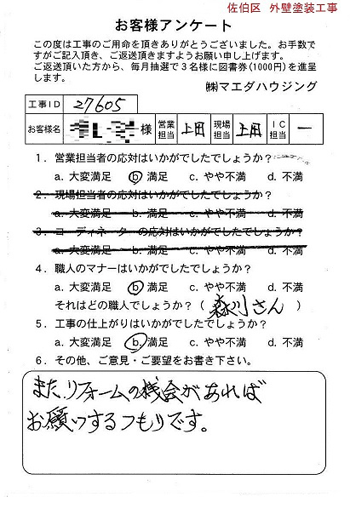 佐伯区 外壁塗装工事
お客様アンケート
この度は工事のご用命を頂きありがとうございました。お手数で
すがご記入頂き、ご返送頂きますようお願い申し上げます。
ご返送頂いた方から、毎月抽選で3名様に図書券(1000円)を進呈
します。
㈱マエダハウジング
工事ID 27605
お客様名 様 営業担当 上田 現場担当 上田 IC担当 ー
1．営業担当者の応対はいかがでしたでしょうか？
a. 大変満足 b. 満足 c. やや不満 d. 不満
2．現場担当者の応対はいかがでしたでしょうか？
a. 大変満足 b. 満足 c. やや不満 d. 不満
3．コーディネーターの応対はいかがでしたでしょうか？
a. 大変満足 b. 満足 c. やや不満 d. 不満
4．職人のマナーはいかがでしたでしょうか？
a. 大変満足 b. 満足 c. やや不満 d. 不満
それはどの職人でしょうか？（ 森川さん ）
5．工事の仕上がりはいかがでしたでしょうか？
a. 大変満足 b. 満足 c. やや不満 d. 不満
6．その他、ご意見・ご要望をお書き下さい。
また、リフォームの機会があれば
お願いするつもりです。